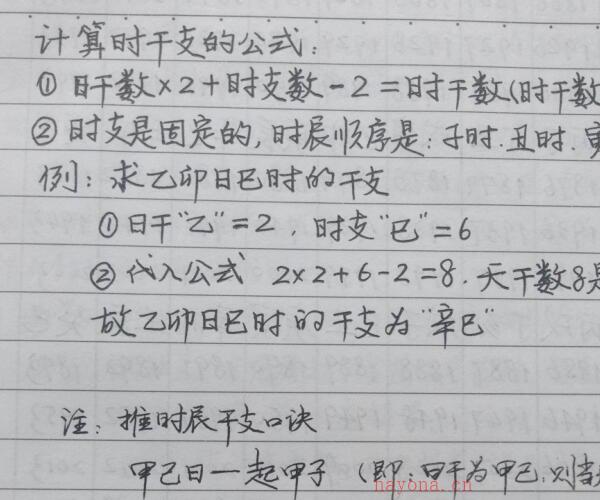 计算时干支的公式:
① 日干数×2+时支数-2=时干数(时干数
② 时支是固定的,时辰顺序是:子时.丑时.寅
例:求乙卯日巳时的干支
① 日干"乙"=2 时支"巳"=6
② 代入公式 2×2+6-2=8.天干数8是
故乙卯日巳时的干支为"辛巳"
注:推时辰干支口诀
甲己日一起甲子(即:日干为甲己,则当
nayona.cn